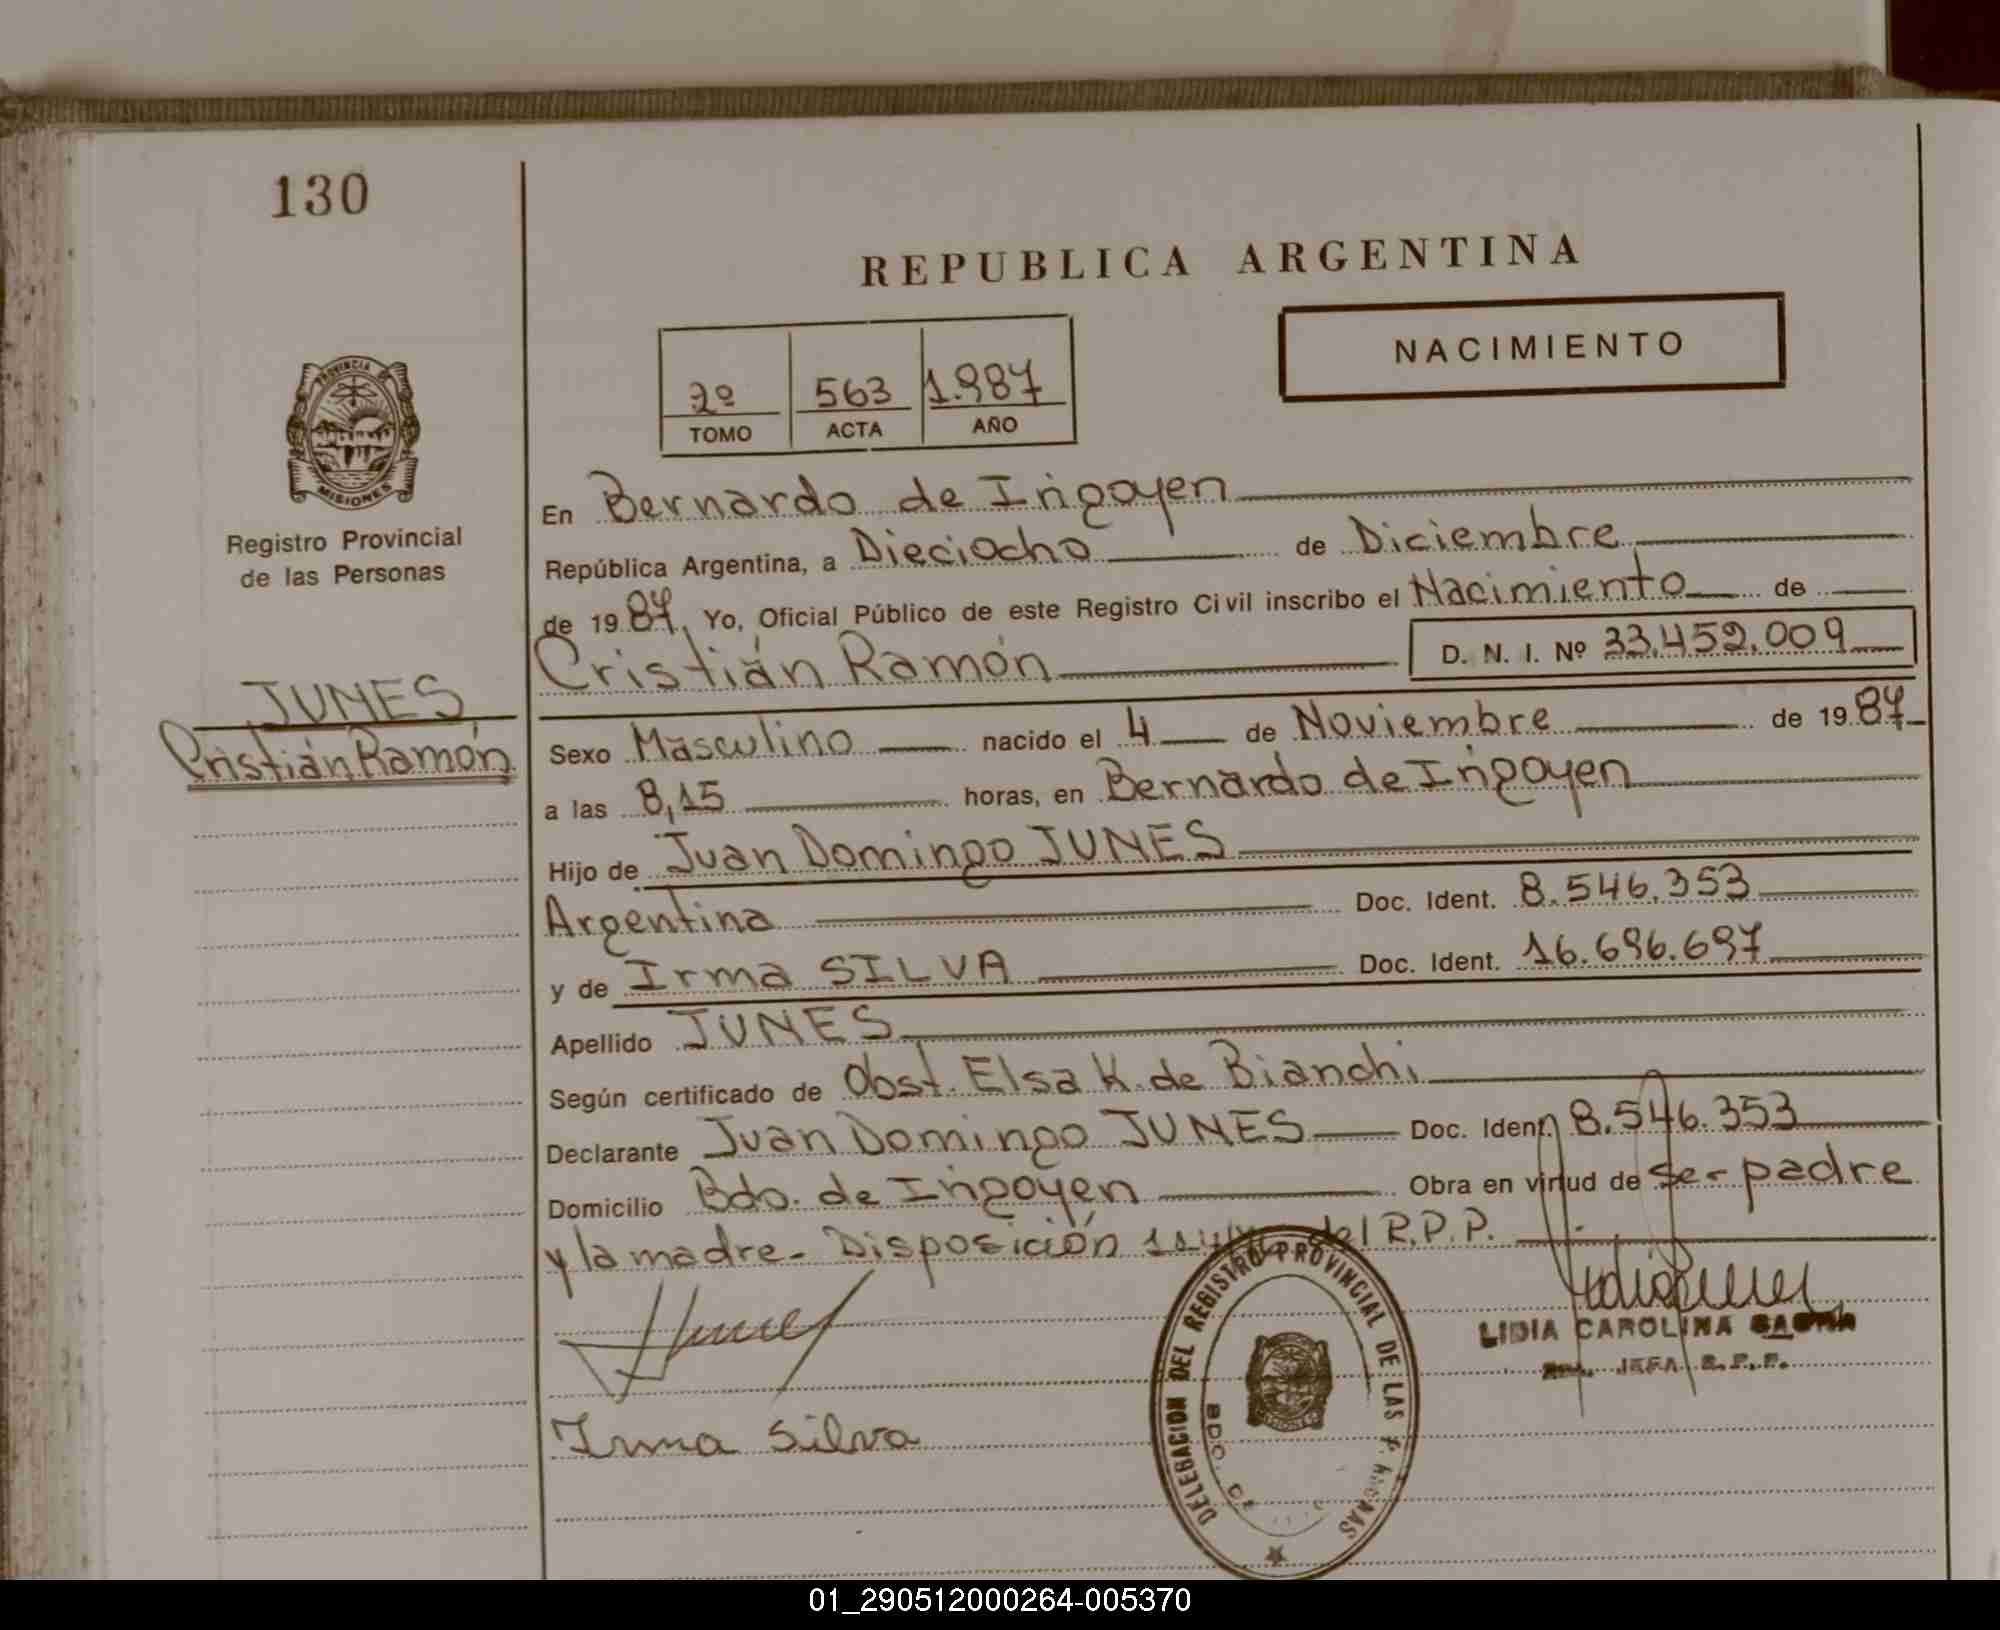 130
REPUBLICA ARGENTINA
NACIMIENTO
2º 563 1.987
TOMO ACTA AÑO
PROVINCIA DE
MISIONES
Registro Provincial
de las Personas
JUNES
Cristián Ramón
En Bernardo de Irigoyen
República Argentina, a Dieciocho de Diciembre
de 1987. Yo, Oficial Público de este Registro Civil inscribo el Nacimiento de
Cristián Ramón D. N. I. Nº 33.452.009
Sexo Masculino nacido el 4 de Noviembre de 1987
a las 8,15 horas, en Bernardo de Irigoyen
Hijo de Juan Domingo JUNES
Argentina Doc. Ident. 8.546.353
y de Irma SILVA Doc. Ident. 16.696.697
Apellido JUNES
Según certificado de Obst. Elsa K. de Bianchi
Declarante Juan Domingo JUNES Doc. Ident. 8.546.353
Domicilio Bdo. de Irigoyen Obra en virtud de ser padre
y la madre. Disposición del R.P.P.
DELEGACION DEL REGISTRO PROVINCIAL DE LAS
BDO. DE
LIDIA CAROLINA
JEFA R.P.P.
Irma Silva
01_290512000264-005370